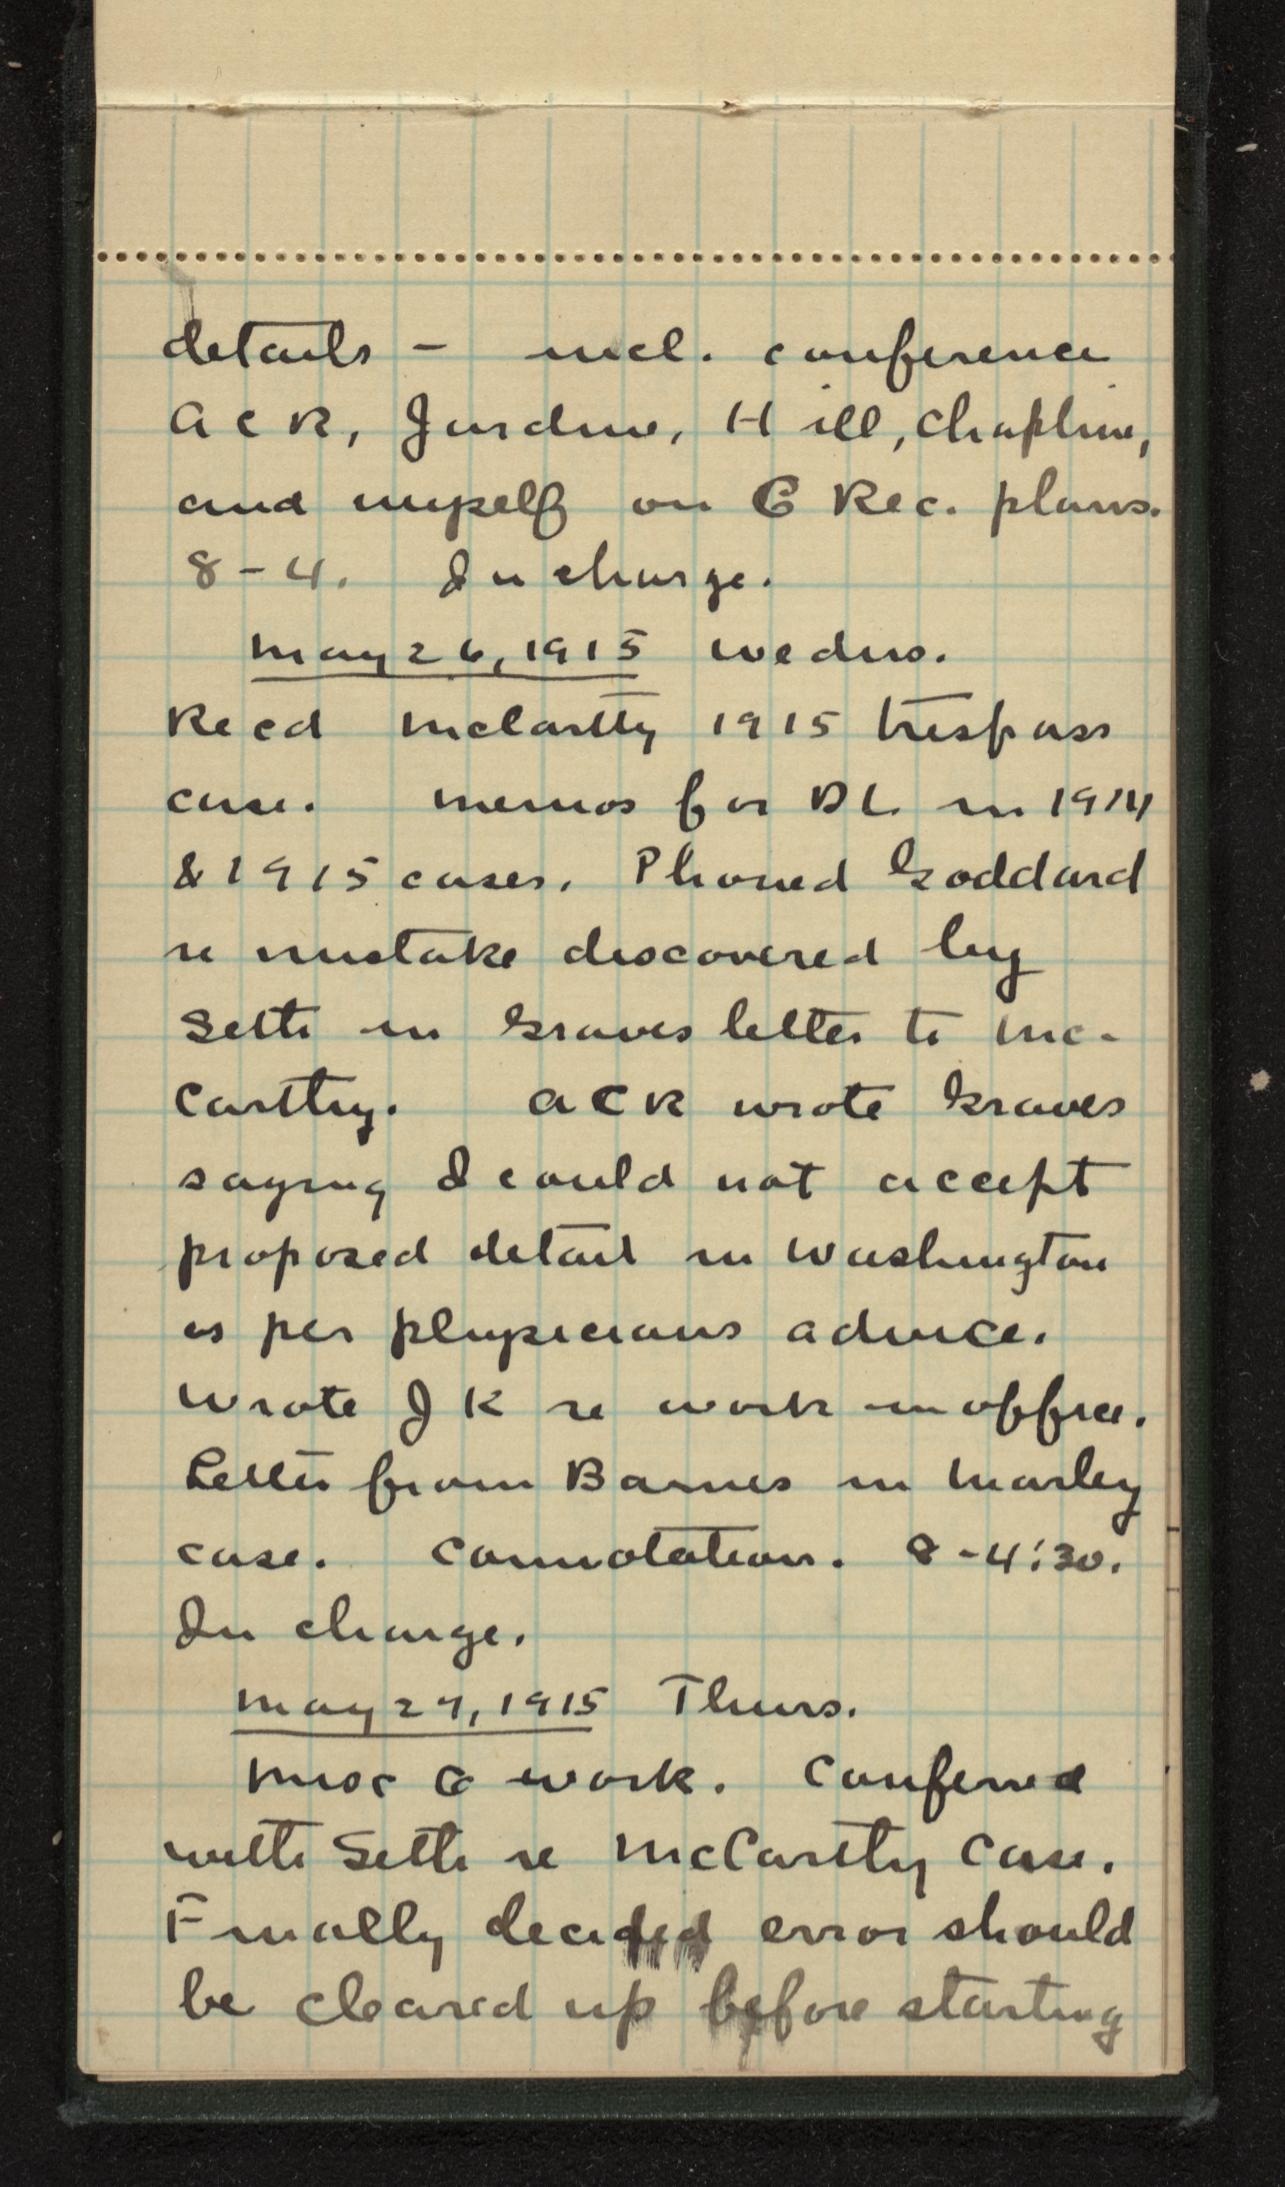 details - incl. conference
ACR, Jardine, Hill, Chapline,
and myself on G Rec. plans.
8-4. In charge.
May 26, 1915 Wednes.
Recd McCarthy 1915 trespass
case. Memos for DL in 1914
& 1915 cases. Phoned Goddard
re mistake discovered by
Seth in Graves letter to Mc-
Carthy. ACR wrote Graves
saying I could not accept
proposed detail in Washington
as per physicians advice.
Wrote JK re work in office.
Letter from Barnes in Marley
case. Connotation. 8-4:30.
In charge.
May 27, 1915 Thurs.
Misc G work. Conferred
with Seth re McCarthy case.
Finally decided error should
be cleared up before starting